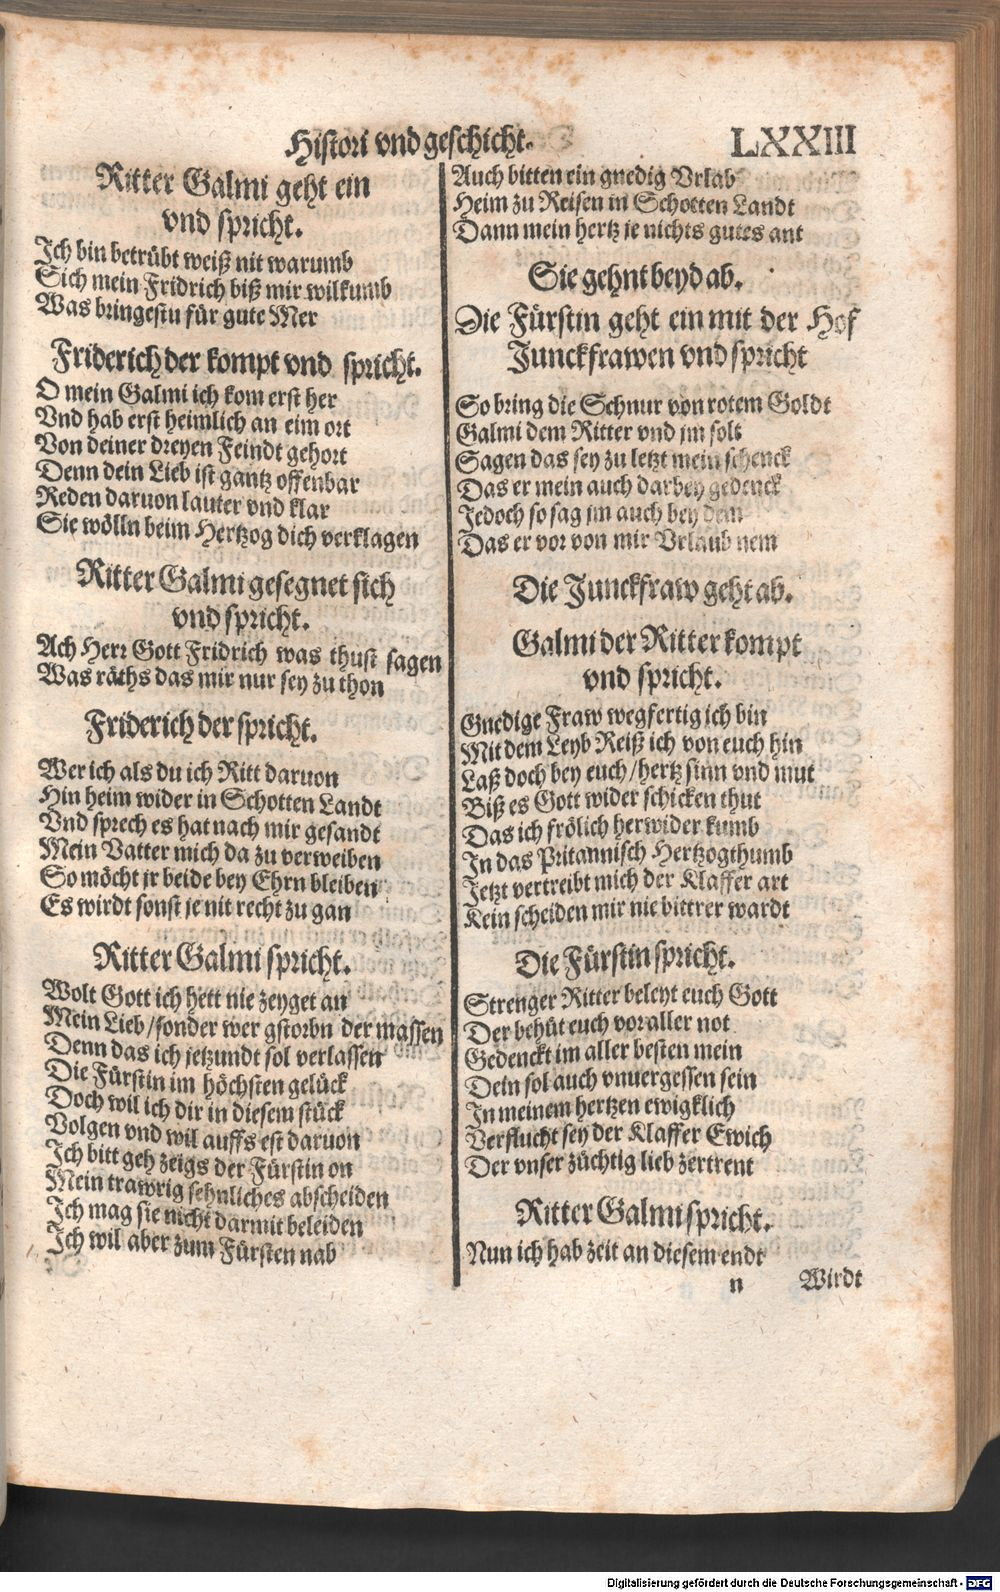 Histori vnd geschicht.
LXXIII
Ritter Galmi geht ein
vnd spricht.
Ich bin betrübt weiß nit warumb
Sich mein Fridrich biß mir wilkumb
Was bringestu für gute Mer
Friderich der kompt vnd spricht.
O mein Galmi ich kom erst her
Vnd hab erst heimlich an eim ort
Von deiner dreyen Feindt gehort
Denn dein Lieb ist gantz offenbar
Reden daruon lauter vnd klar
Sie wölln beim Hertzog dich verklagen
Ritter Galmi gesegnet sich
vnd spricht.
Ach Herr Gott Fridrich was thust sagen
Was räths das mir nur sey zu thon
Friderich der spricht.
Wer ich als du ich Ritt daruon
Hin heim wider in Schotten Landt
Vnd sprech es hat nach mir gesandt
Mein Vatter mich da zu verweiben
So möcht jr beide bey Ehrn bleiben
Es wirdt sonst je nit recht zu gan
Ritter Galmi spricht.
Wolt Gott ich hett nie zeyget an
Mein Lieb/sonder wer gstorbn der massen
Denn das ich jetzundt sol verlassen
Die Fürstin im höchsten gelück
Doch wil ich dir in diesem stück
Volgen vnd wil auffs est daruon
Ich bitt geh zeigs der Fürstin on
Mein trawrig sehnliches abscheiden
Ich mag sie nicht darmit beleiden
Ich wil aber zum Fürsten nab
Auch bitten ein gnedig Vrlab
Heim zu Reisen in Schotten Landt
Dann mein hertz je nichts gutes ant
Sie gehnt beyd ab.
Die Fürstin geht ein mit der Hof
Junckfrawen vnd spricht
So bring die Schnur von rotem Goldt
Galmi dem Ritter vnd jm solt
Sagen das sey zu letzt mein schenck
Das er mein auch darbey gedenck
Jedoch so sag jm auch bey dem
Das er vor von mir Vrlaub nem
Die Junckfraw geht ab.
Galmi der Ritter kompt
vnd spricht.
Gnedige Fraw wegfertig ich bin
Mit dem Leyb Reiß ich von euch hin
Laß doch bey euch/hertz sinn vnd mut
Biß es Gott wider schicken thut
Das ich frölich herwider kumb
In das Pritannisch Hertzogthumb
Jetzt vertreibt mich der Klaffer art
Kein scheiden mir nie bittrer wardt
Die Fürstin spricht.
Strenger Ritter beleyt euch Gott
Der behüt euch vor aller not
Gedenckt im aller besten mein
Dein sol auch vnuergessen sein
In meinem hertzen ewigklich
Verflucht sey der Klaffer Ewich
Der vnser züchtig lieb zertrent
Ritter Galmi spricht.
Nun ich hab zeit an diesem endt
n
Wirdt
Digitalisierung gefördert durch die Deutsche Forschungsgemeinschaft - DFG